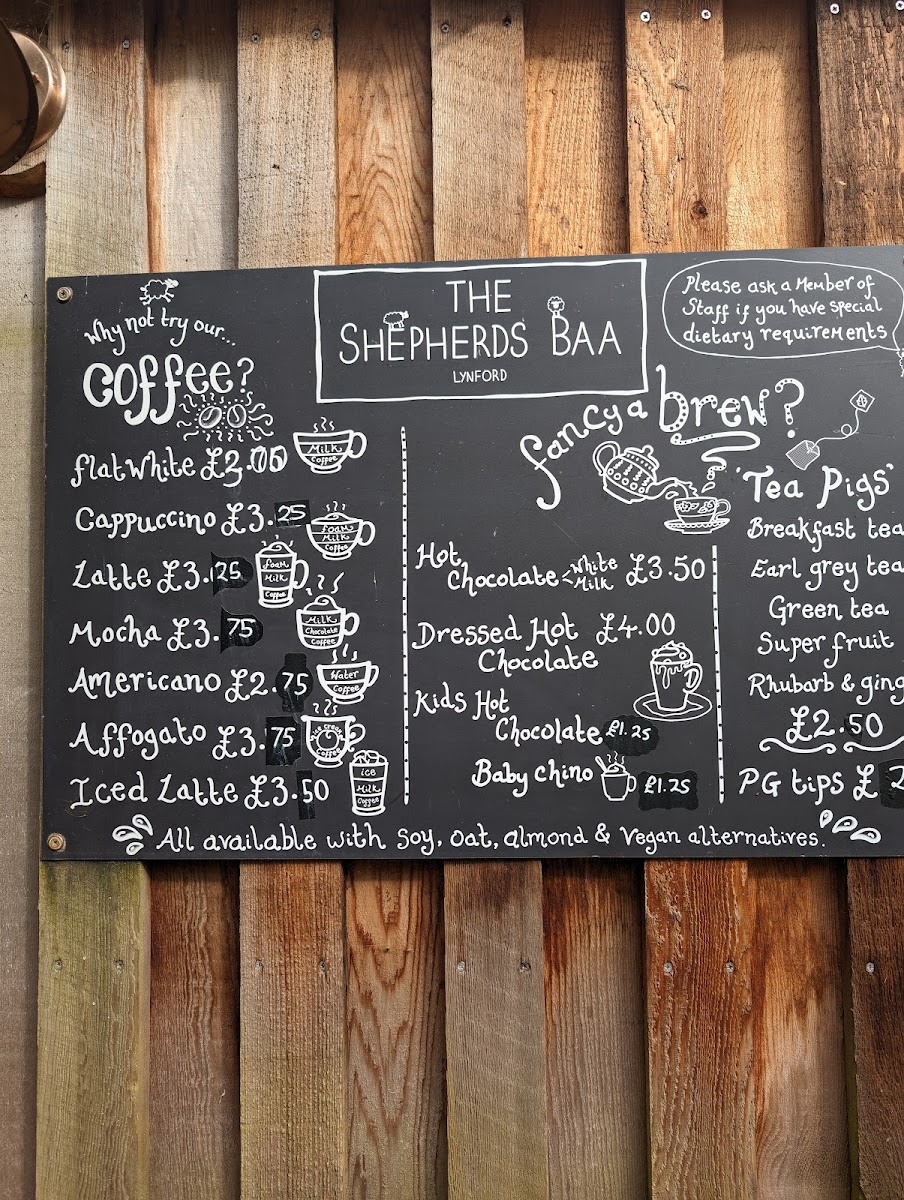 THE
SHEPHERDS BAA
LYNFORD
Why not try our....
Coffee?
flat white
Milk
Coffee
Cappuccino £3.25
foam
Milk
Coffee
Latte £3.25
foam
Milk
Coffee
Mocha £3.75
Milk
Chocolate
Coffee
Americano £2.75
Water
Coffee
Affogato £3.75
Ice cream
Coffee
Iced Latte £3.50
ice
Milk
Coffee
fancy a brew?
Hot
Chocolate < White Milk £3.50
Dressed Hot £4.00
Chocolate
Kids Hot
Chocolate £1.25
Baby chino £1.25
Please ask a Member of
Staff if you have special
dietary requirements
'Tea Pigs'
Breakfast tea
Earl grey tea
Green tea
Super fruit
Rhubarb & ging
£2.50
PG tips £
All available with Soy, Oat, almond & Vegan alternatives.